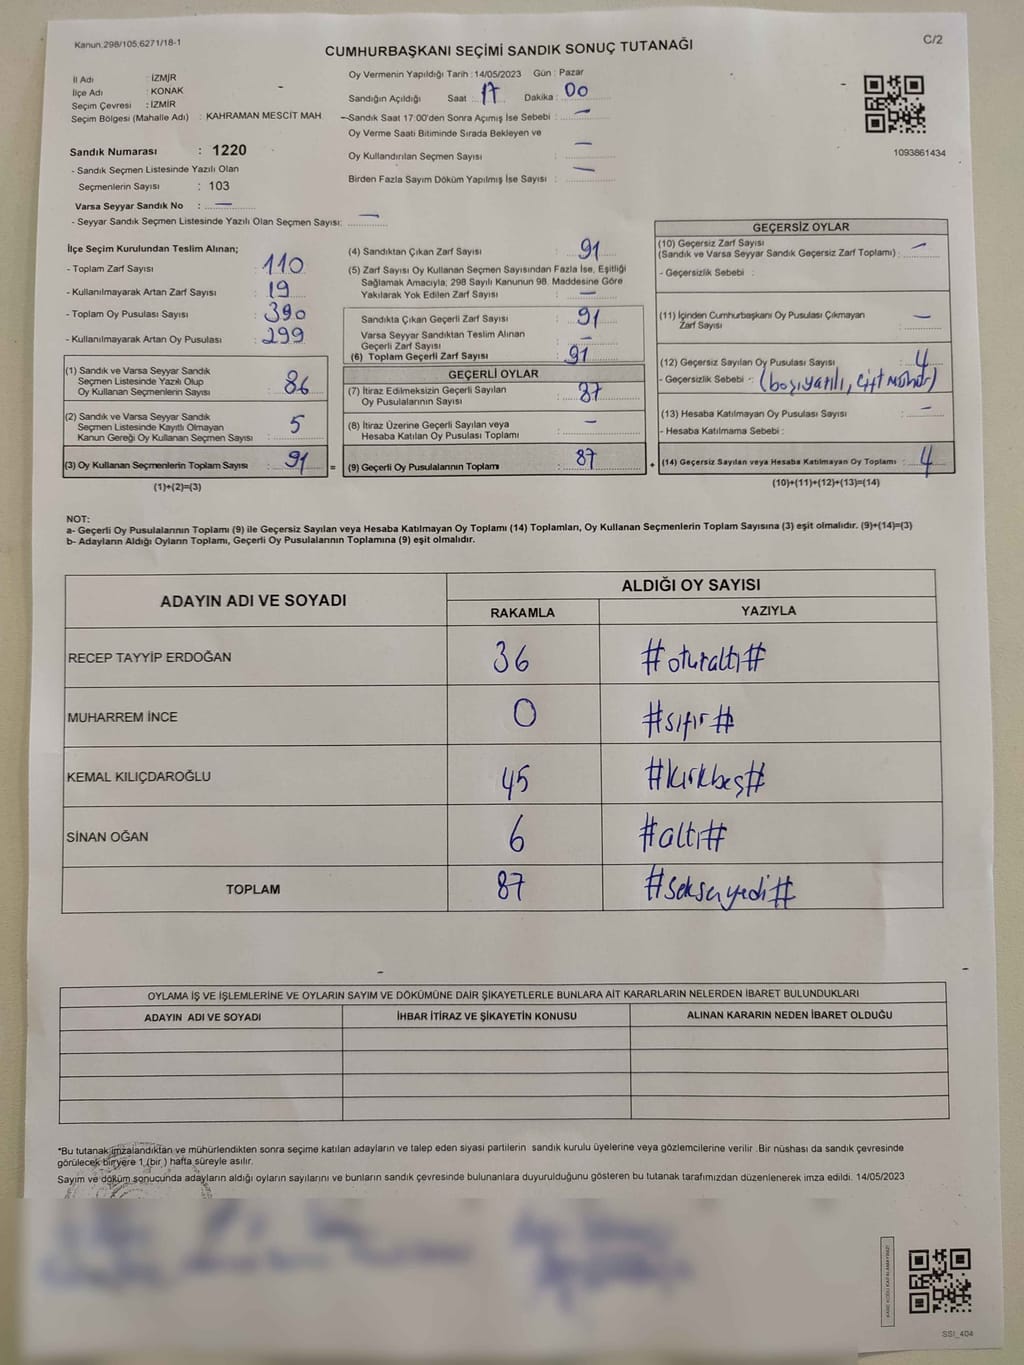 Kanun.298/105;6271/18-1
C/2
CUMHURBAŞKANI SEÇİMİ SANDIK SONUÇ TUTANAĞI
İl Adı : İZMİR
İlçe Adı : KONAK
Seçim Çevresi : İZMİR
Seçim Bölgesi (Mahalle Adı) : KAHRAMAN MESCİT MAH
Sandık Numarası : 1220
- Sandık Seçmen Listesinde Yazılı Olan
Seçmenlerin Sayısı : 103
Varsa Seyyar Sandık No : —
- Seyyar Sandık Seçmen Listesinde Yazılı Olan Seçmen Sayısı: —
Oy Vermenin Yapıldığı Tarih : 14/05/2023 Gün : Pazar
Sandığın Açıldığı Saat : 17 Dakika : 00
Sandık Saat 17:00'den Sonra Açımış İse Sebebi : —
Oy Verme Saati Bitiminde Sırada Bekleyen ve
Oy Kullandırılan Seçmen Sayısı : —
Birden Fazla Sayım Döküm Yapılmış İse Sayısı : —
1093861434
İlçe Seçim Kurulundan Teslim Alınan;
- Toplam Zarf Sayısı : 110
- Kullanılmayarak Artan Zarf Sayısı : 19
- Toplam Oy Pusulası Sayısı : 390
- Kullanılmayarak Artan Oy Pusulası : 299
(1) Sandık ve Varsa Seyyar Sandık
Seçmen Listesinde Yazılı Olup
Oy Kullanan Seçmenlerin Sayısı : 86
(2) Sandık ve Varsa Seyyar Sandık
Seçmen Listesinde Kayıtlı Olmayan
Kanun Gereği Oy Kullanan Seçmen Sayısı : 5
(3) Oy Kullanan Seçmenlerin Toplam Sayısı : 91
(1)+(2)=(3)
(4) Sandıktan Çıkan Zarf Sayısı : 91
(5) Zarf Sayısı Oy Kullanan Seçmen Sayısından Fazla İse, Eşitliği
Sağlamak Amacıyla; 298 Sayılı Kanunun 98. Maddesine Göre
Yakılarak Yok Edilen Zarf Sayısı : —
Sandıkta Çıkan Geçerli Zarf Sayısı : 91
Varsa Seyyar Sandıktan Teslim Alınan
Geçerli Zarf Sayısı : —
(6) Toplam Geçerli Zarf Sayısı : 91
GEÇERLİ OYLAR
(7) İtiraz Edilmeksizin Geçerli Sayılan
Oy Pusulalarının Sayısı : 87
(8) İtiraz Üzerine Geçerli Sayılan veya
Hesaba Katılan Oy Pusulası Toplamı : —
= (9) Geçerli Oy Pusulalarının Toplamı : 87
GEÇERSİZ OYLAR
(10) Geçersiz Zarf Sayısı
(Sandık ve Varsa Seyyar Sandık Geçersiz Zarf Toplamı) : —
- Geçersizlik Sebebi :
(11) İçinden Cumhurbaşkanı Oy Pusulası Çıkmayan
Zarf Sayısı : —
(12) Geçersiz Sayılan Oy Pusulası Sayısı : 4
- Geçersizlik Sebebi : çift mühür)
(13) Hesaba Katılmayan Oy Pusulası Sayısı : —
- Hesaba Katılmama Sebebi :
+ (14) Geçersiz Sayılan veya Hesaba Katılmayan Oy Toplamı : 4
(10)+(11)+(12)+(13)=(14)
NOT:
a- Geçerli Oy Pusulalarının Toplamı (9) ile Geçersiz Sayılan veya Hesaba Katılmayan Oy Toplamı (14) Toplamları, Oy Kullanan Seçmenlerin Toplam Sayısına (3) eşit olmalıdır. (9)+(14)=(3)
b- Adayların Aldığı Oyların Toplamı, Geçerli Oy Pusulalarının Toplamına (9) eşit olmalıdır.
ADAYIN ADI VE SOYADI
ALDIĞI OY SAYISI
RAKAMLA YAZIYLA
RECEP TAYYİP ERDOĞAN 36 #oturaltı#
MUHARREM İNCE 0 #sıfır#
KEMAL KILIÇDAROĞLU 45 #kırkbeş#
SİNAN OĞAN 6 #altı#
TOPLAM 87 #seksenyedi#
OYLAMA İŞ VE İŞLEMLERİNE VE OYLARIN SAYIM VE DÖKÜMÜNE DAİR ŞİKAYETLERLE BUNLARA AİT KARARLARIN NELERDEN İBARET BULUNDUKLARI
ADAYIN ADI VE SOYADI İHBAR İTİRAZ VE ŞİKAYETİN KONUSU ALINAN KARARIN NEDEN İBARET OLDUĞU
*Bu tutanak imzalandıktan ve mühürlendikten sonra seçime katılan adayların ve talep eden siyasi partilerin sandık kurulu üyelerine veya gözlemcilerine verilir. Bir nüshası da sandık çevresinde
görülecek bir yere 1 (bir ) hafta süreyle asılır.
Sayım ve döküm sonucunda adayların aldığı oyların sayılarını ve bunların sandık çevresinde bulunanlara duyurulduğunu gösteren bu tutanak tarafımızdan düzenlenerek imza edildi. 14/05/2023
SSI_404